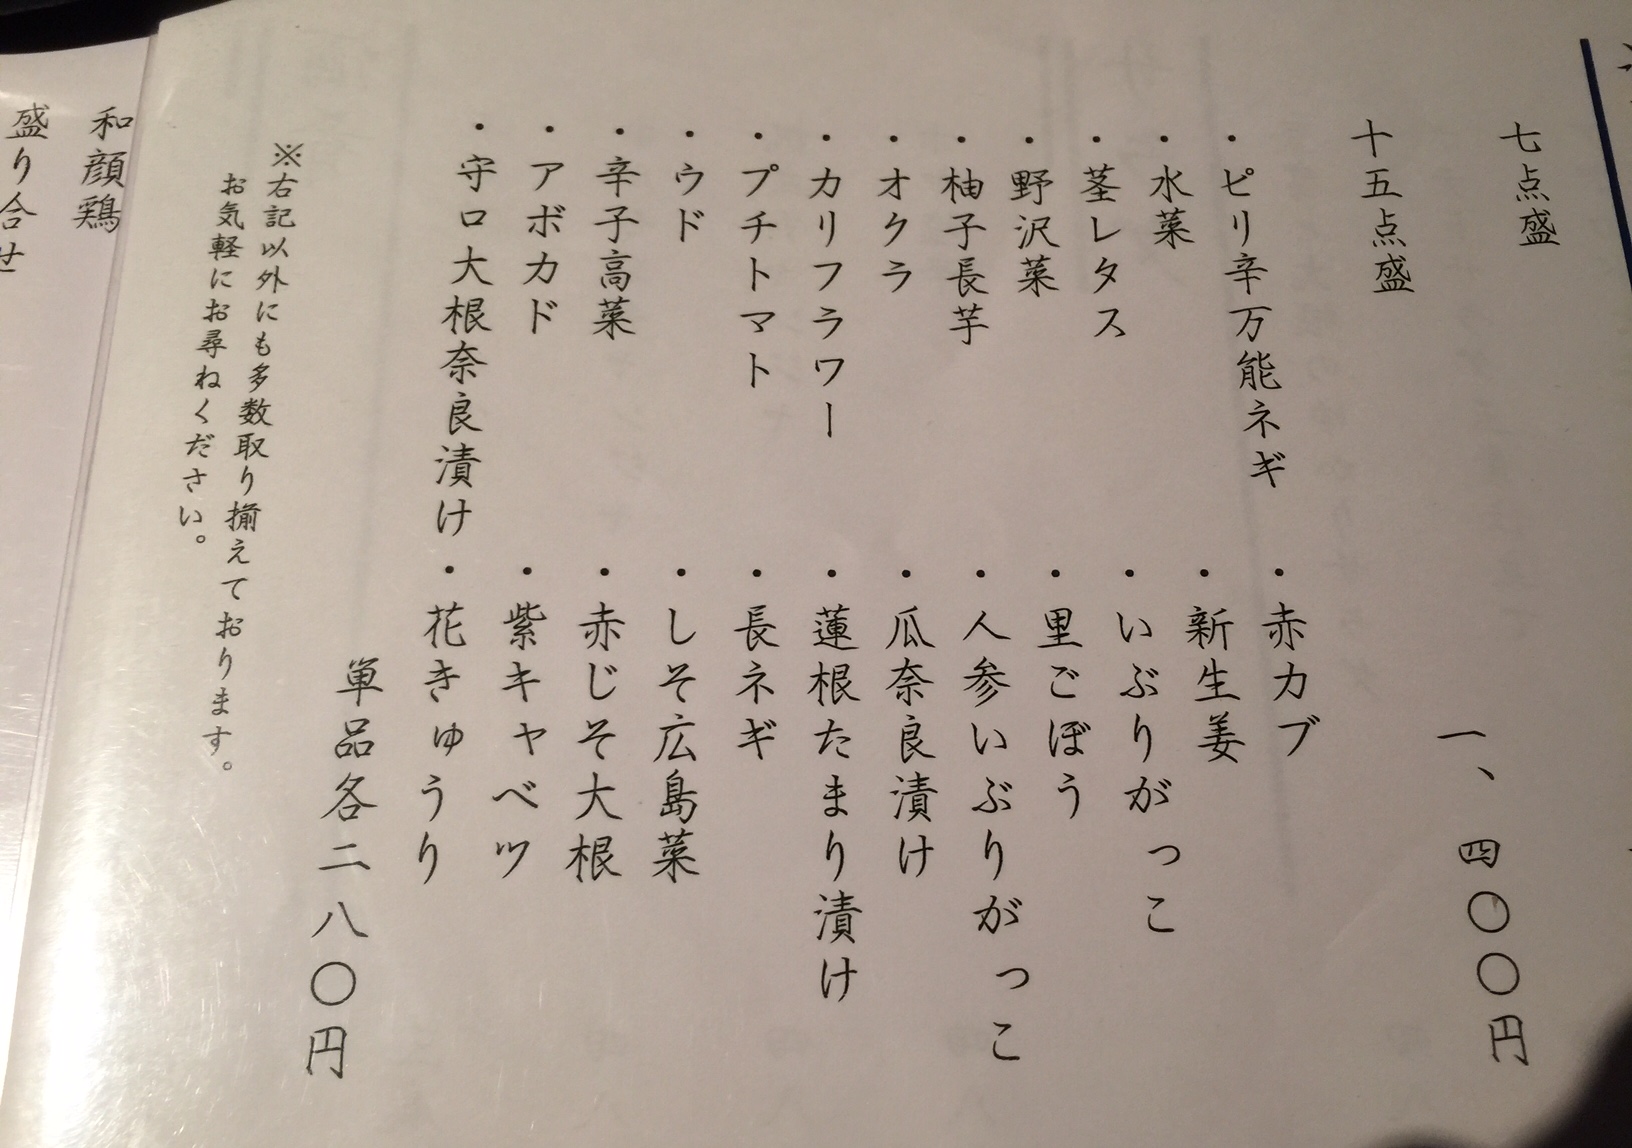 七点盛
十五点盛
一、四〇〇円
・ピリ辛万能ネギ
・水菜
・茎レタス
・野沢菜
・柚子長芋
・オクラ
・カリフラワー
・プチトマト
・ウド
・辛子高菜
・アボカド
・守口大根奈良漬け
・赤カブ
・新生姜
・いぶりがっこ
・里ごぼう
・人参いぶりがっこ
・瓜奈良漬け
・蓮根たまり漬け
・長ネギ
・しそ広島菜
・赤じそ大根
・紫キャベツ
・花きゅうり
単品各二八〇円
※右記以外にも多数取り揃えております。
お気軽にお尋ねください。
和顔鶏
盛り合せ